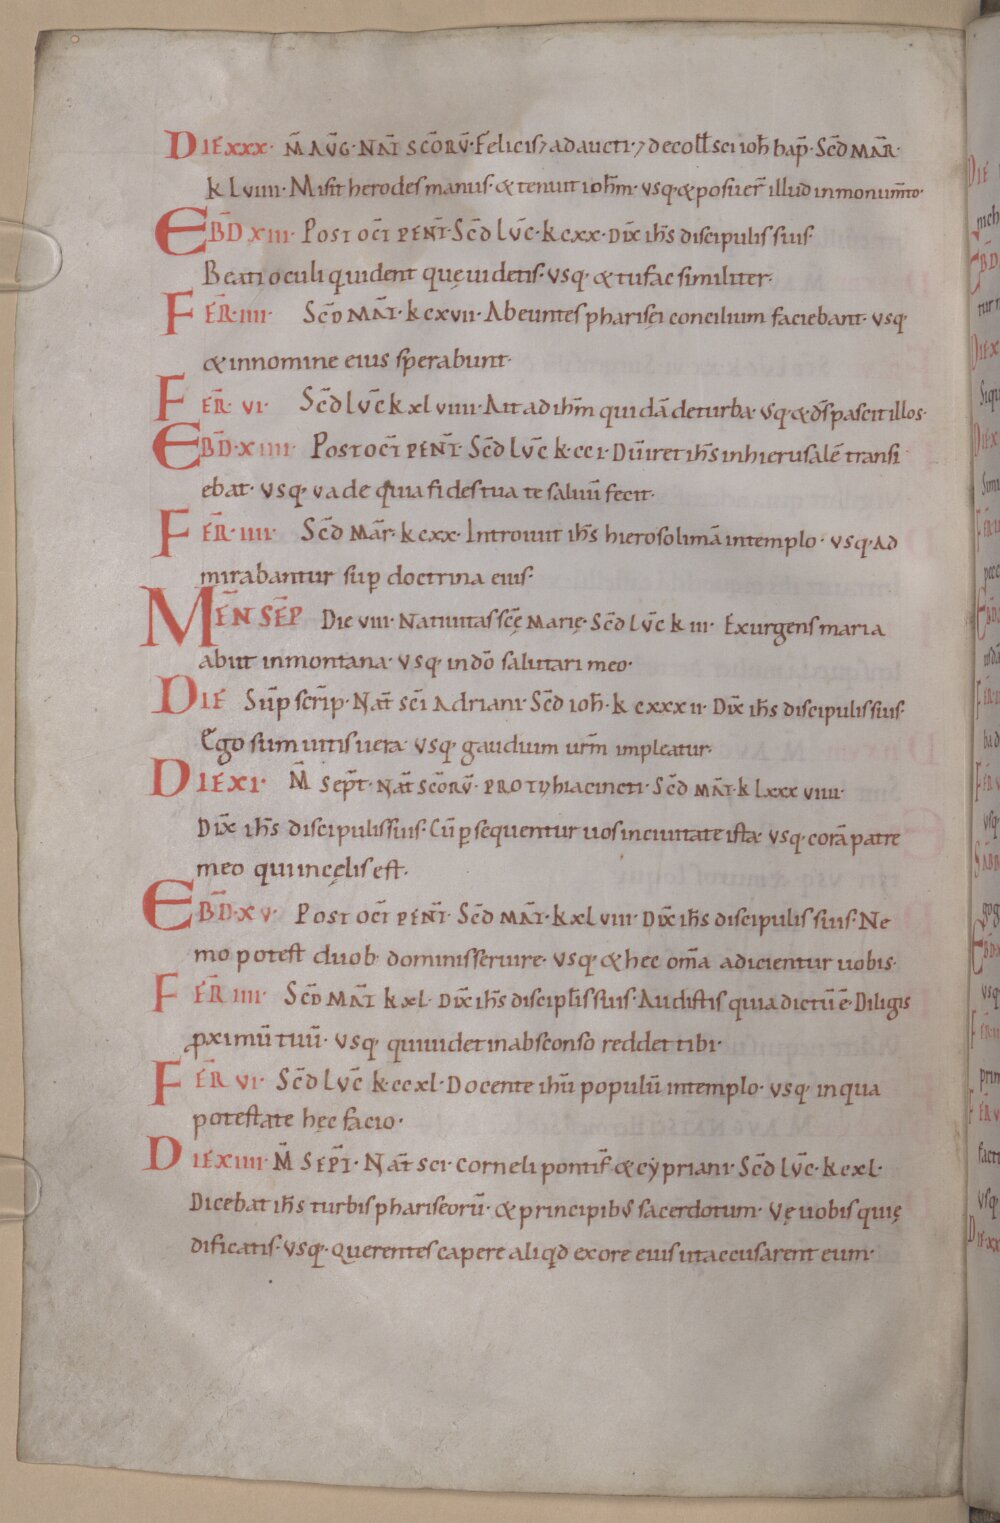 DIE XXX. M̄ AVḠ. NAT̄ SCŌRV̄. Felicis ⁊ adaucti. ⁊ decoll̄ sci ioh̄ bap̄. Sc̄d MAR̄.
K LVIIII. Misit herodes manus. & tenuit ioh̄m. vsq. & posuer̄ illud in monum̄to.
EBD̄ XIII. Post oct̄ PENT̄. Sc̄d LVC̄. K CXX. Dix̄ ih̄s discipulis suis.
Beati oculi qui uident quę uidetis. vsq. & tu fac similiter.
FER̄. IIII. Sc̄D MAT̄. K CXVII. Abeuntes pharisęi concilium faciebant. vsq.
& in nomine eius sperabunt.
FER̄. VI. Sc̄d LVC̄ K XLVIIII. Ait ad ih̄m quidā de turba. vsq. & ds̄ pascit illos.
EBD̄. XIIII. Post oct̄ PENT̄. Sc̄d LVC̄ K. CCI. Dū iret ih̄s in hierusalē transi
ebat. vsq. uade quia fides tua te saluū fecit.
FER̄. IIII. Sc̄d MAR̄. K CXX. Introiuit ih̄s hierosolimā in templo. vsq. AD
mirabantur sup̄ doctrina eius.
MEN̄ SEP̄ Die VIII. Natiuitas scę̄ Marię. Sc̄d LVC̄ K III. Exurgens maria
abiit in montana. vsq. in dō salutari meo.
DIE Sup̄ scrip̄. Nat̄ sc̄i Adriani. Sc̄d ioh̄. K CXXXII. Dix̄ ih̄s discipulis suis.
Ego sum uitis uera. vsq. gaudium urm̄ impleatur.
DIE XI. M̄ Sept̄. Nat̄ SCŌRV̄. PROTI ⁊ hiacincti. Sc̄d MAT̄. K LXXXVIIII.
Dix̄ ih̄s discipulis suis. Cū psequentur uos in ciuitate ista. vsq. corā patre
meo qui in cęlis est.
EBD̄. XV. Post oct̄ PENT̄. Sc̄d MAT̄. K XLVIII. Dix̄ ih̄s discipulis suis. Ne
mo potest duob. dominis seruire. vsq. & hec om̄a adicientur uobis.
FER̄ IIII. Sc̄D MAT̄ K XL. Dix̄ ih̄s discipl̄is suis. Audistis quia dictū ē. Diligis
pximū tuū. vsq. qui uidet in absconso reddet tibi.
FER̄ VI. Sc̄d LVC̄ K. CCXL. Docente ih̄u populū in templo. vsq. in qua
potestate hęc facio.
DIE XIIII. M̄ SEPT̄. Nat̄ sci Corneli pontif̄ & cypriani. Sc̄d LVC̄. K CXL.
Dicebat ih̄s turbis phariseorū. & principibus sacerdotum. Vę uobis qui ę
dificatis. vsq. Querentes capere aliqd ex ore eius ut accusarent eum.